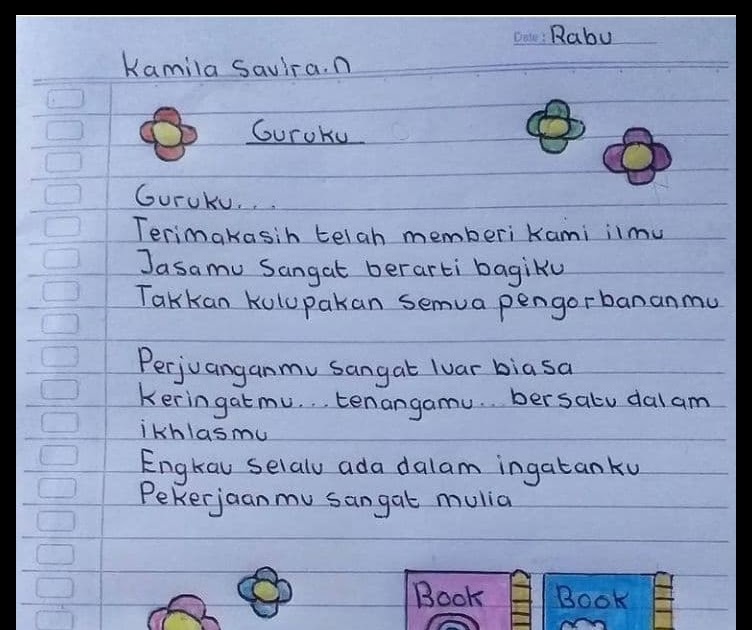 Date: Rabu
Kamila Savira.N
Guruku
Guruku...
Terimakasih telah memberi kami ilmu
Jasamu Sangat berarti bagiku
Takkan kulupakan semua pengorbananmu
Perjuanganmu sangat luar biasa
keringatmu...tenangamu...bersatu dalam
ikhlasmu
Engkau selalu ada dalam ingatanku
Pekerjaanmu sangat mulia
Book Book